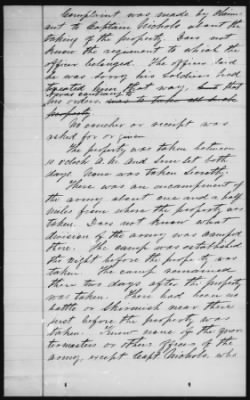 Complaint was made by Claim-
ant to Captain Nichols about the
taking of the property. Does not
know the regiment to which the
officer belonged. The officer said
he was sorry his soldiers had
treated him that way, but that
was contrary to
his orders was to take all such
property
No voucher or receipt was
asked for or given
The property was taken between
10 o'clock A.M. and Sun set both
days. None was taken secretly.
There was an encampment of
the army about one and a half
miles from where the property was
taken. Does not know what
division of the army was camped
there. The camp was established
the night before the property was
taken. The camp remained
there two days after the property
was taken. There had been no
battle or skirmish near there
just before the property was
taken. Knew none of the quar-
termasters or other officers of the
army, except Capt Nichols, who